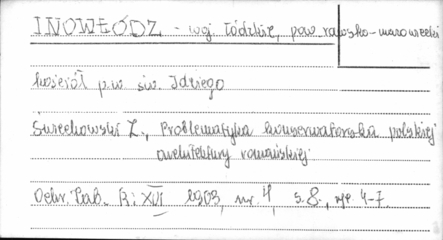 INOWŁÓDZ - woj. łódzkie, pow. rawsko-mazowiecki
kościół p.w. św. Idziego
Świechowski Z., Problematyka konserwatorska polskiej
architektury romańskiej
Ochr. Zab. R: XVI 1963, nr. 4, s. 8., ryc. 4-7.